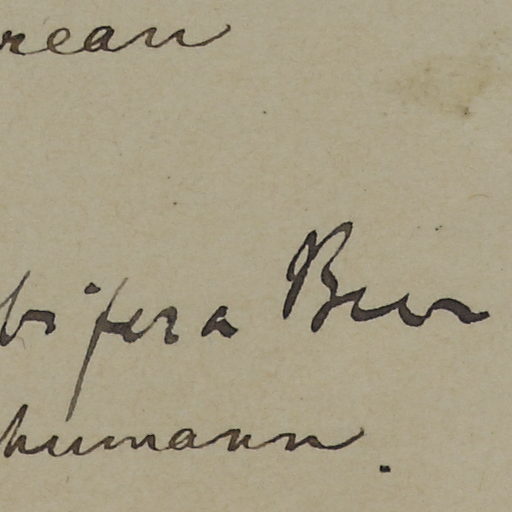 rean
bifera Bur
humann.